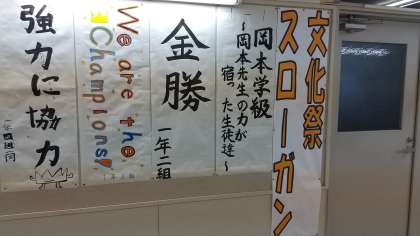 文化祭
スローガン
岡本学級
～岡本先生の力が
宿った生徒達～
金勝
一年二組
We are the
Champions!
強力に協力